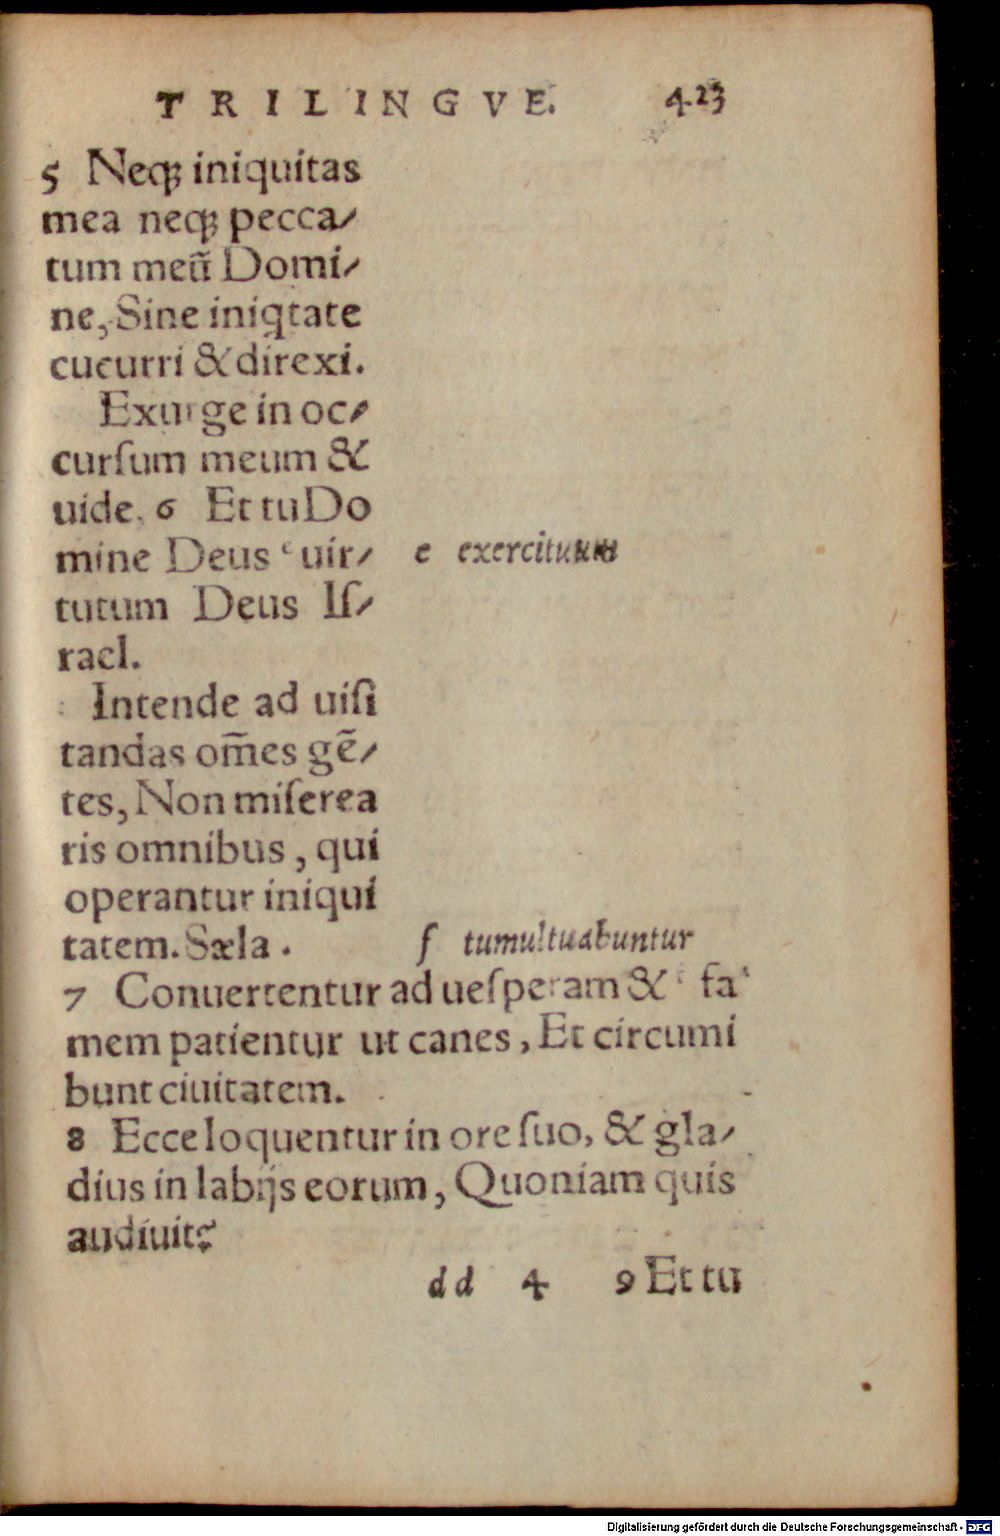 TRILINGVE. 423
5 Neq; iniquitas
mea neq; pecca⸗
tum meũ Domi⸗
ne, Sine iniq̃tate
cucurri & direxi.
Exurge in oc⸗
curſum meum &
uide. 6 Et tu Do
mine Deus ᵉ uir⸗
tutum Deus Iſ⸗
rael.
Intende ad uiſi
tandas om̃es gẽ⸗
tes, Non miſerea
ris omnibus, qui
operantur iniqui
tatem. Sæla.
e exercituum
f tumultuabuntur
7 Conuertentur ad ueſperam & ᶠ fa
mem patientur ut canes, Et circumi
bunt ciuitatem.
8 Ecce loquentur in ore ſuo, & gla⸗
dius in labijs eorum, Quoniam quis
audiuit?
dd 4 9 Et tu
Digitalisierung gefördert durch die Deutsche Forschungsgemeinschaft - DFG